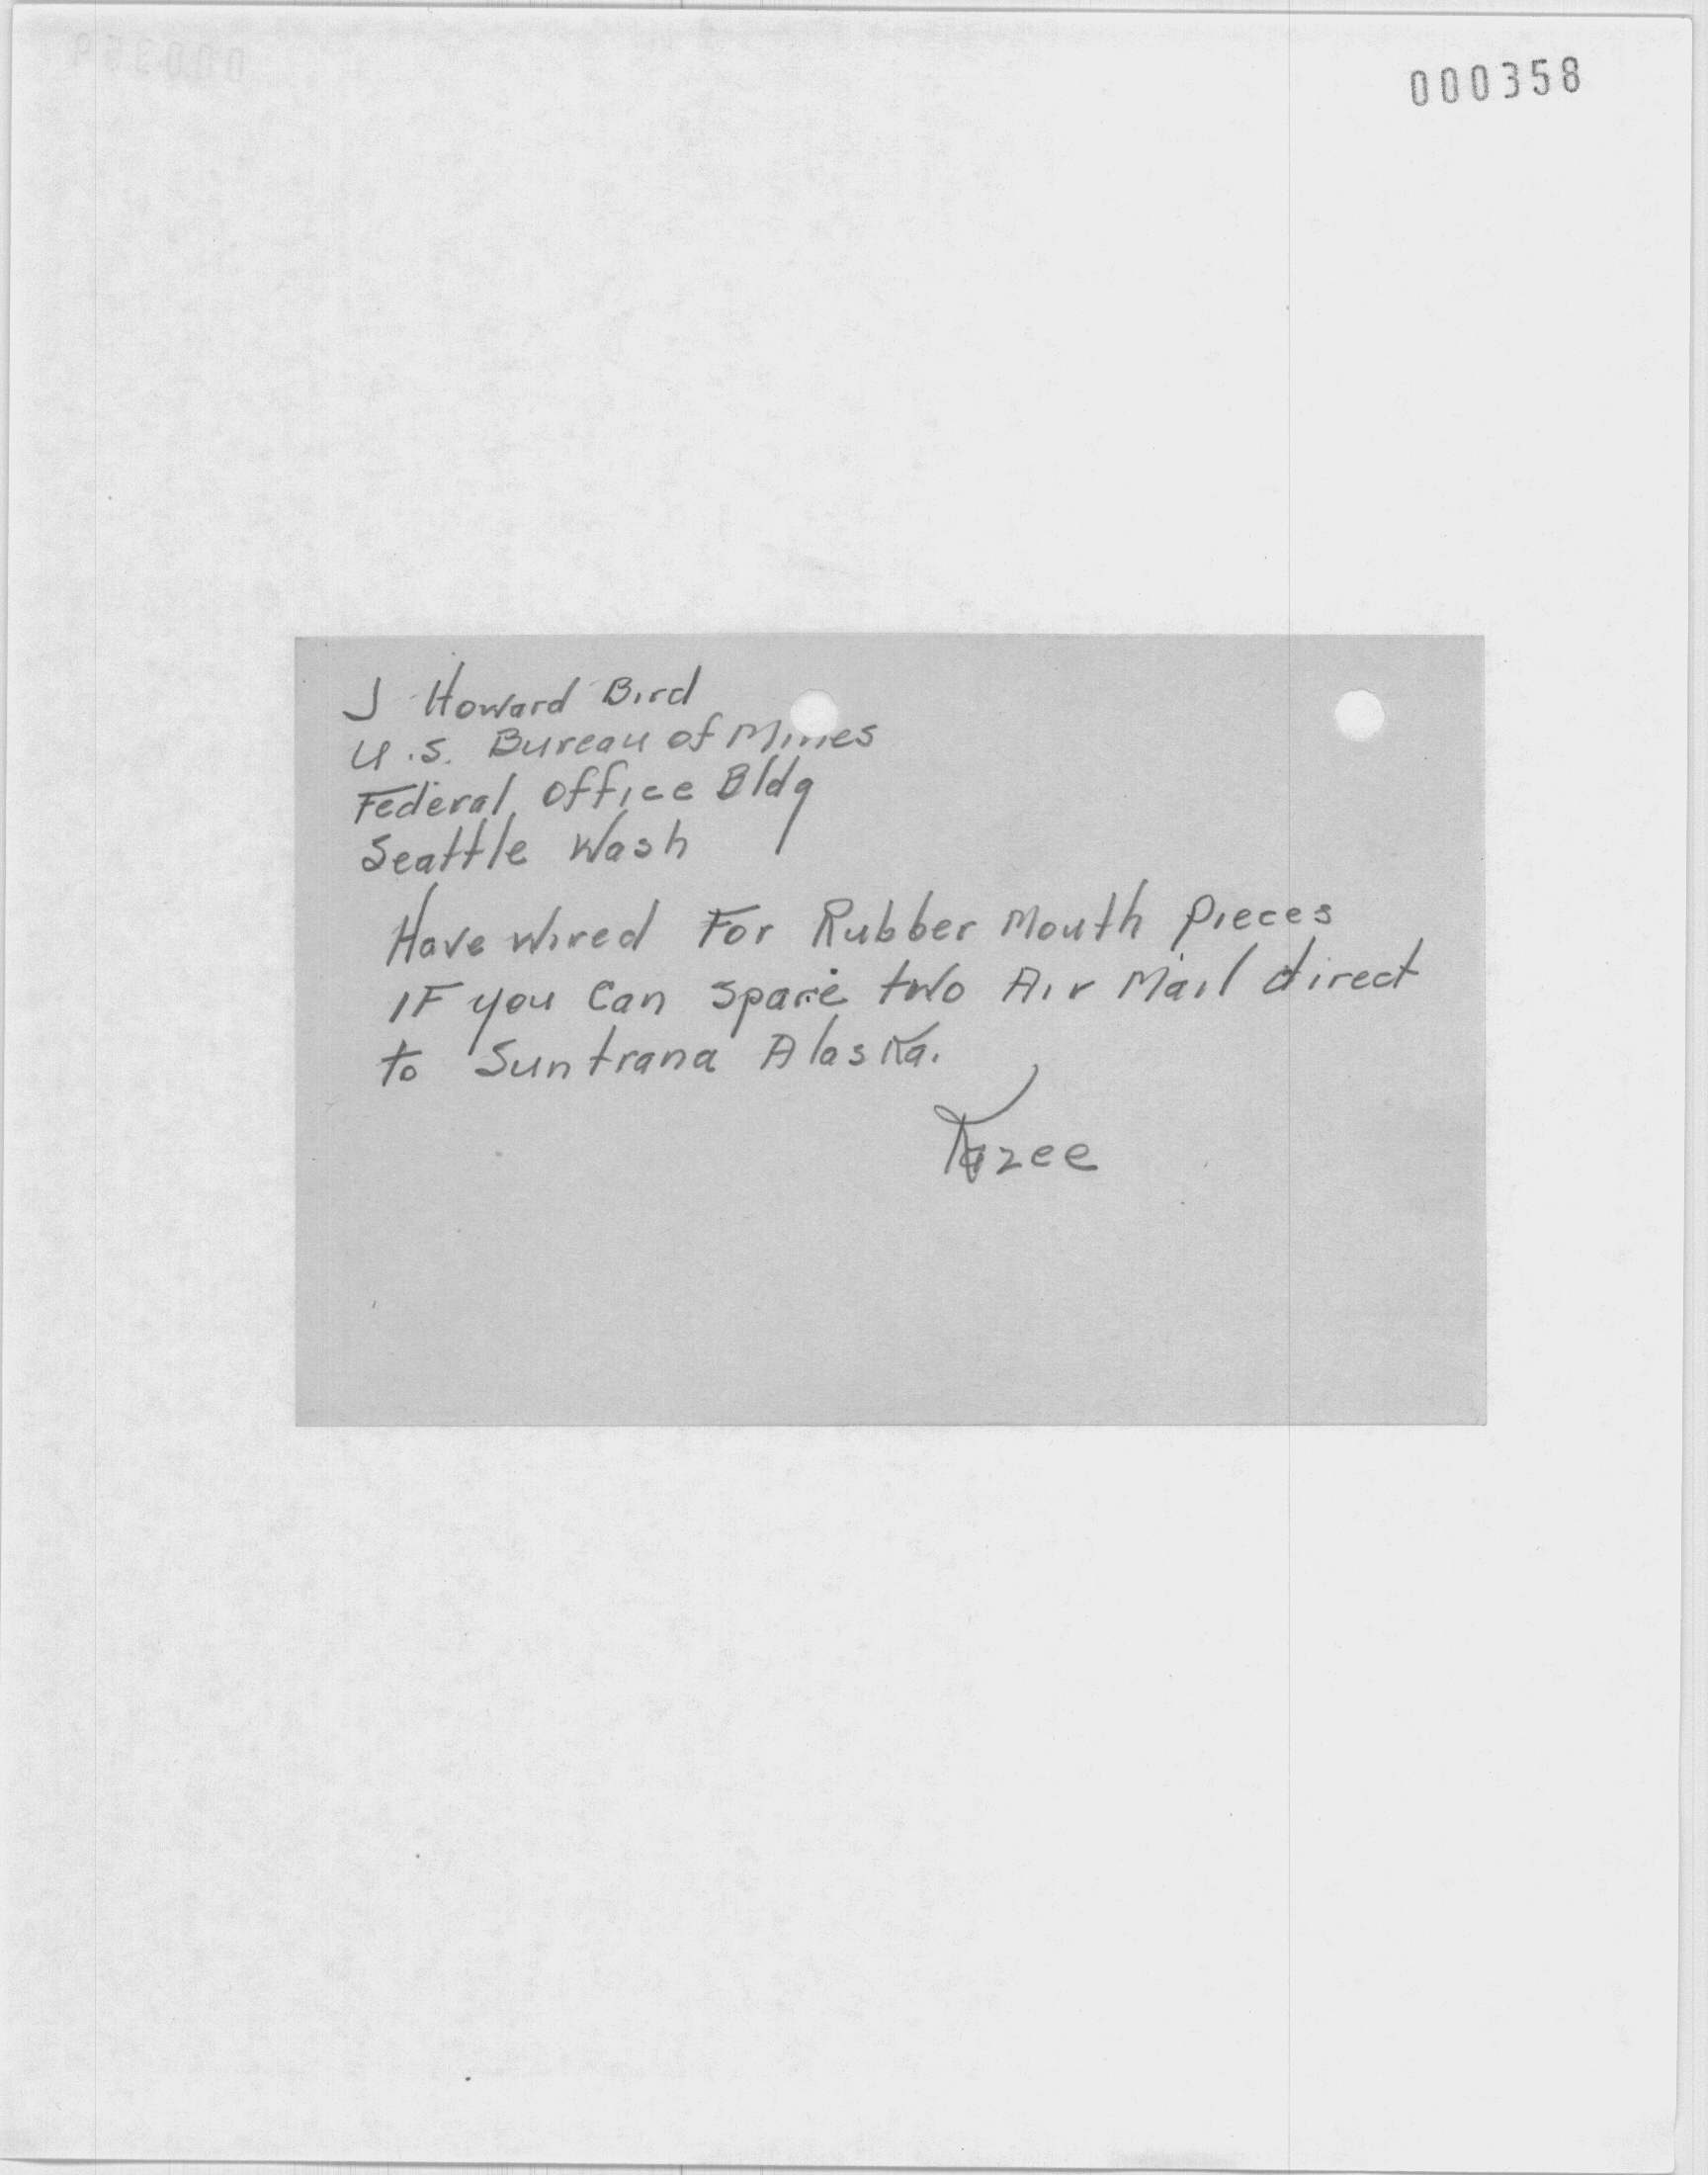 000358
J Howard Bird
U.S. Bureau of Mines
Federal Office Bldg
Seattle Wash
Have wired For Rubber Mouth Pieces
IF you Can Spare two Air Mail direct
to Suntrana Alaska.